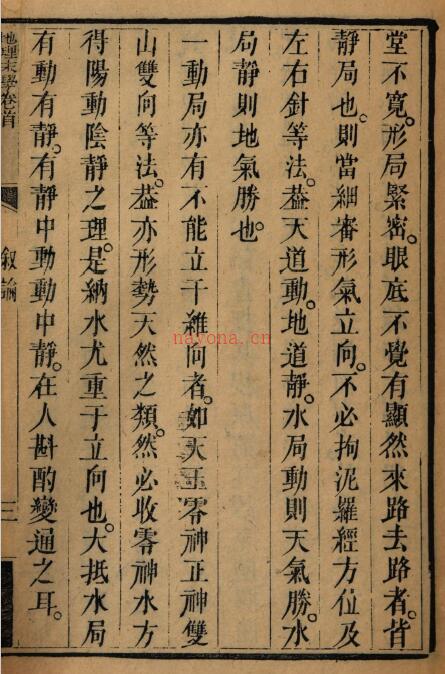 堂不寬。形局緊密。眼底不覺有顯然來路去路者。皆
靜局也。則當細審形氣立向。不必拘泥羅經方位及
左右針等法。葢天道動。地道靜。水局動則天氣勝。水
局靜則地氣勝也。
一動局亦有不能立干維向者。如天玉零神正神雙
山雙向等法。葢亦形勢天然之類。然必收零神水方
得陽動陰靜之理。是納水尤重于立向也。大抵水局
有動有靜。有靜中動動中靜。在人斟酌變通之耳。
地理末學卷首
叙論
三
nayona.cn